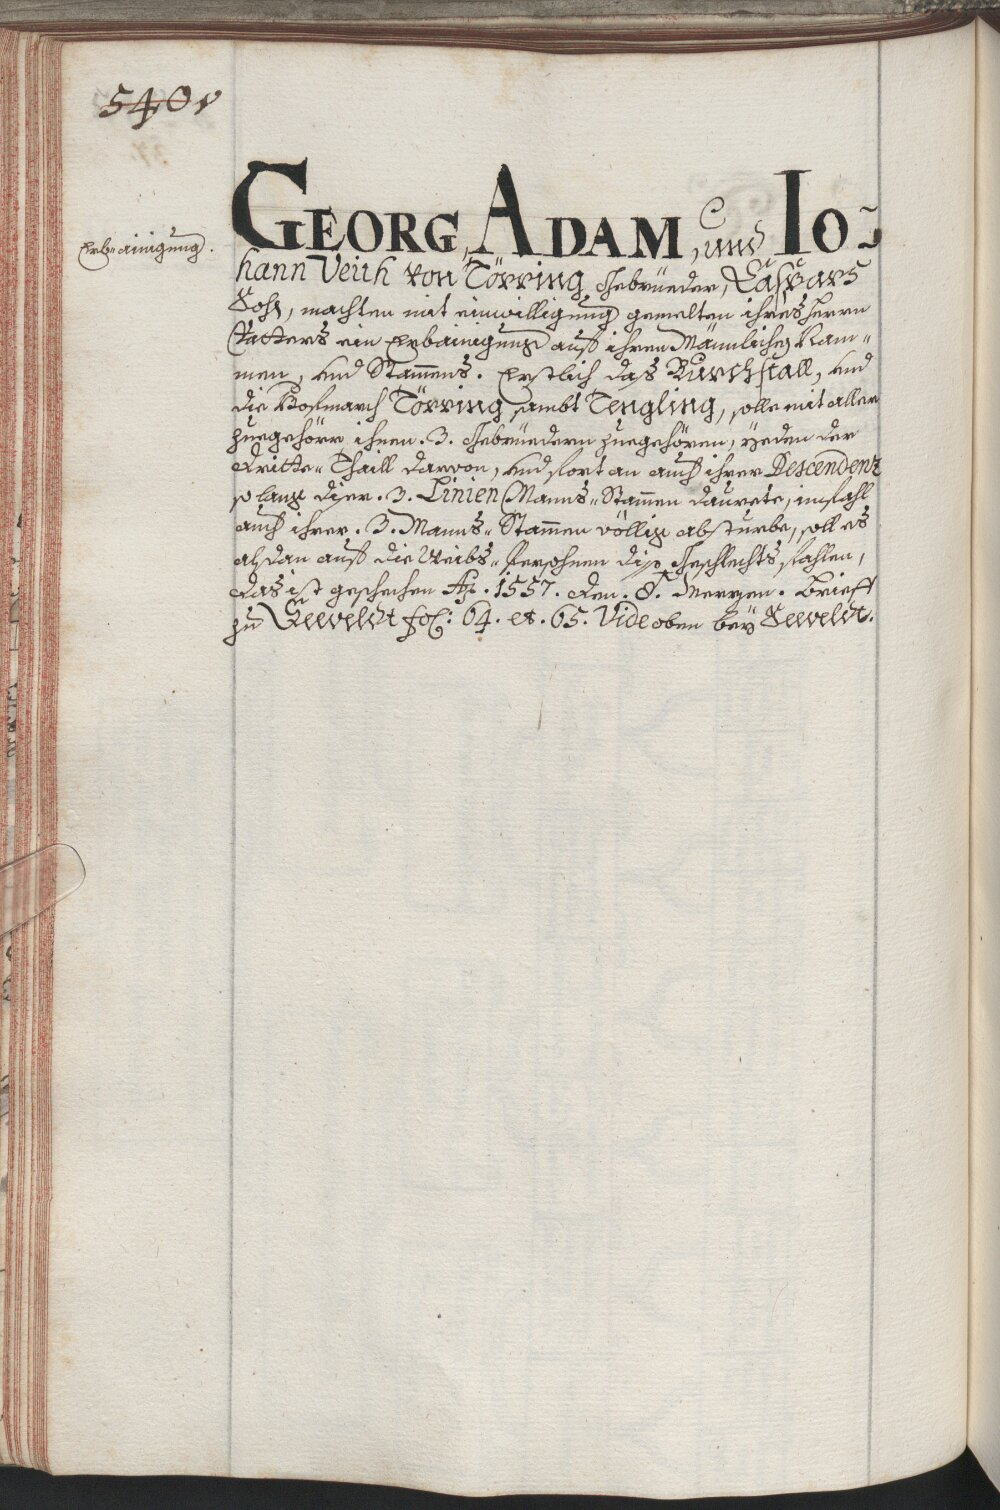 540v
Erb=ainigung.
GEORG, ADAM, und IO=
hann Veith von Törring Gebrüeder, Caspars
Sohn, machten mit einwilligung gemelten ihres Herrn
Vatters ein Erbainigung auff ihren Männlichen Nam=
men, und Stam̄ens. Erstlich das Burchstall, und
die Hofmarch Törring sambt Tengling, solle mit aller
zuegehörr ihnen .3. Gebrüedern zuegehören, yeden der
dritte=Thaill darvon, und fort an auch ihrer Descendenz
so lang diser .3. Linien Manns=Stam̄en daurete, im fahl
auch ihrer .3. Manns=Stam̄en völlig absturbe, soll es
alsdan auff die Weibs=Persohnen diss Geschlechts fahlen,
das ist geschechen Aō. 1557. den .8. Merzen. Brieff
zu Seeveldt fol: 64. et. 65. Vide oben beÿ Seeveldt.